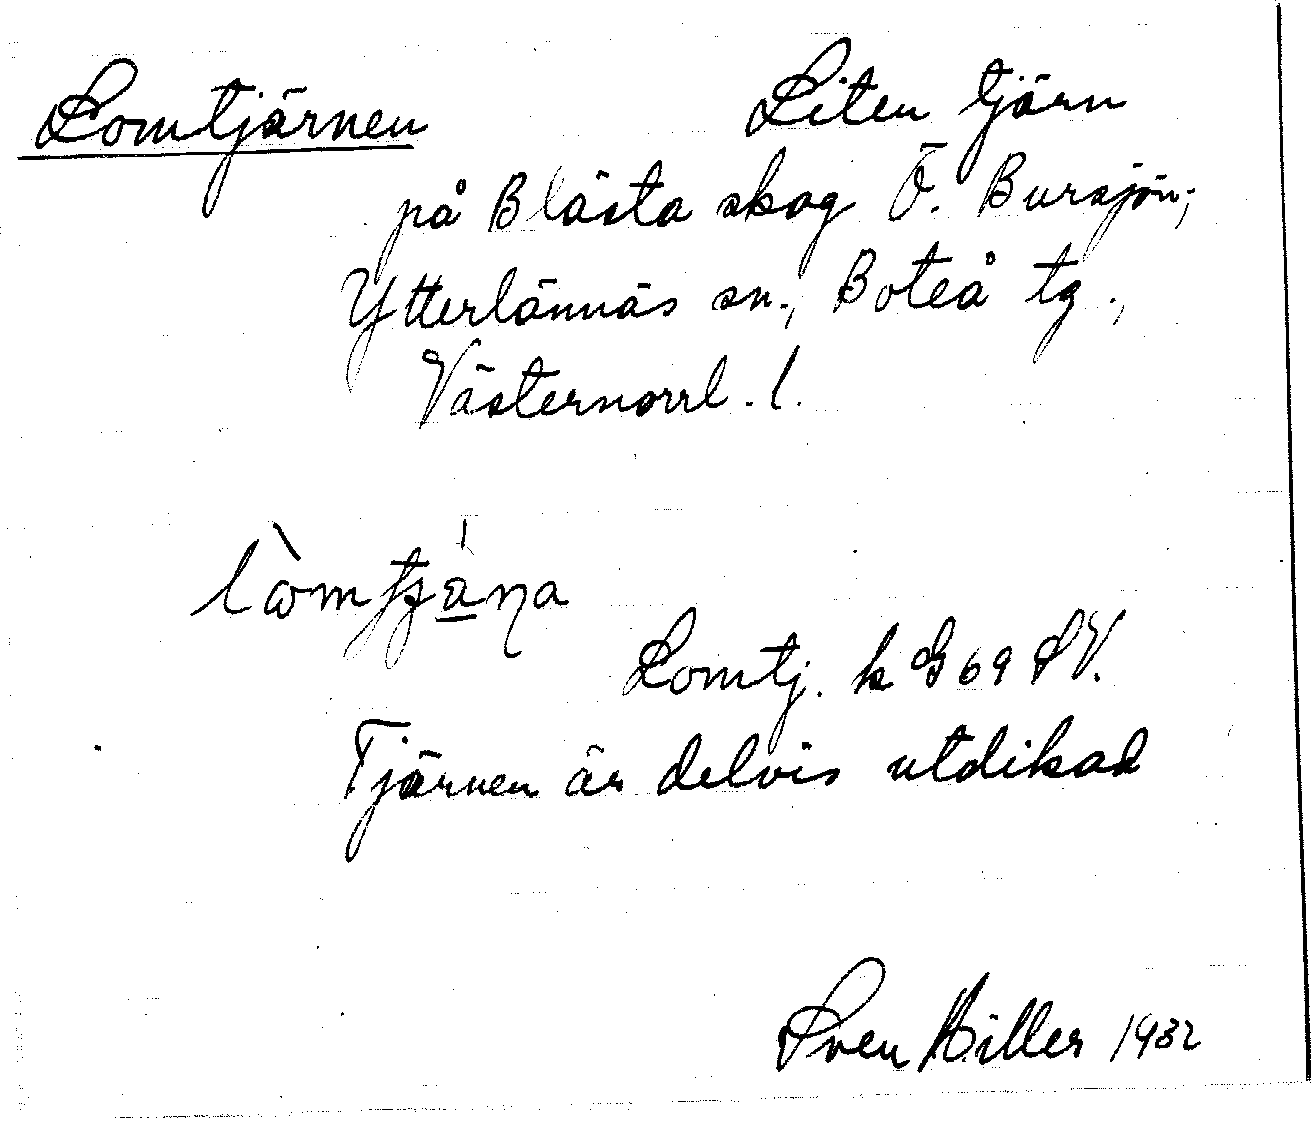 Lomtjärnen Liten tjärn
på Blästa skog Ö. Bursjön;
Ytterlännäs sn., Boteå tg.,
Västernorrl. l.
Lomtj. k G 69 SV.
Tjärnen är delvis utdikad
Sven Hiller 1932